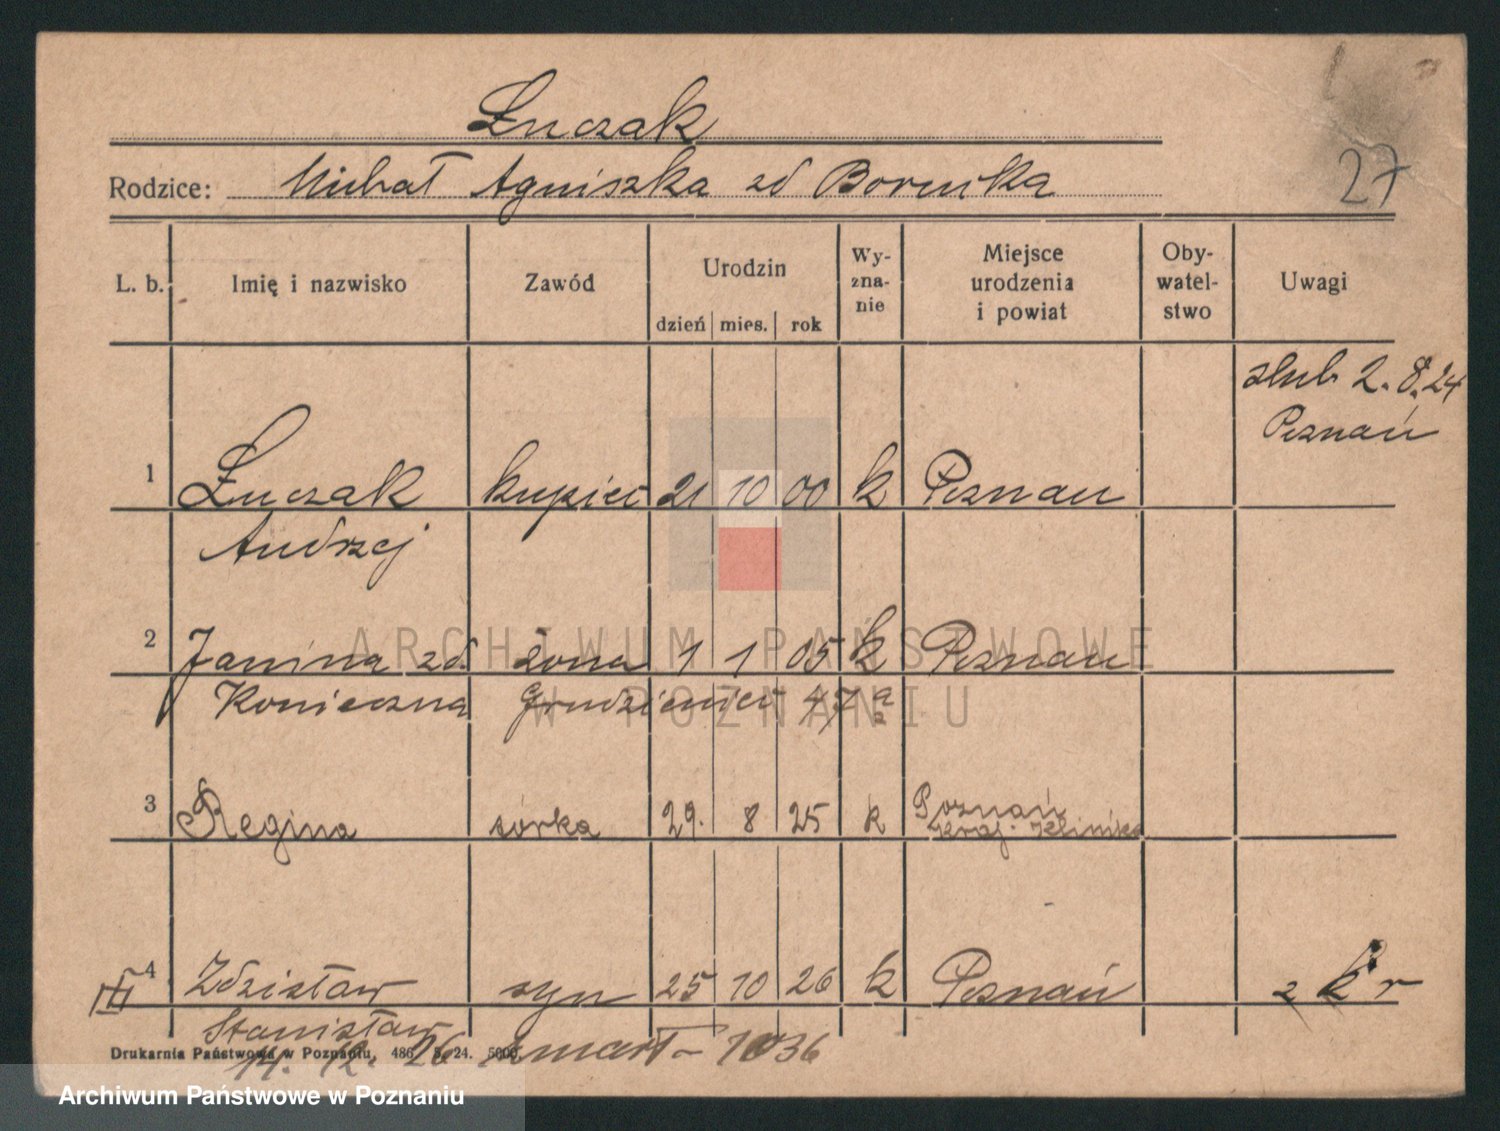 Łuczak
Rodzice: Michał Agniszka zd Borucka
27
L. b. Imię i nazwisko Zawód Urodzin dzień mies. rok Wy-zna-nie Miejsce urodzenia i powiat Oby-watel-stwo Uwagi
ślub 2.8.24
Poznań
1 Łuczak kupiec 21 10 00 k Poznań
Andrzej
2 Janina zd. żona 1 1 05 k Poznań
Konieczna Grudzieniec 47a
3 Regina córka 29. 8 25 k Poznań
Kraj. Klinika
4 Zdzisław syn 25 10 26 k Poznań z k r
Stanisław
Drukarnia Państwowa w Poznaniu, 486. 5. 24. 5000.
14. 12. 26 zmarł - 1036
ARCHIWUM PAŃSTWOWE
W POZNANIU
Archiwum Państwowe w Poznaniu